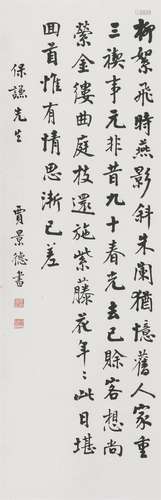 柳絮飛時燕影斜朱闌猶憶舊人家重
三禊事元非昔九十春光去已賒客想尚
縈金縷曲庭枝還施紫藤花年〻此日堪
回首惟有情思漸已差
保謙先生
賈景德書